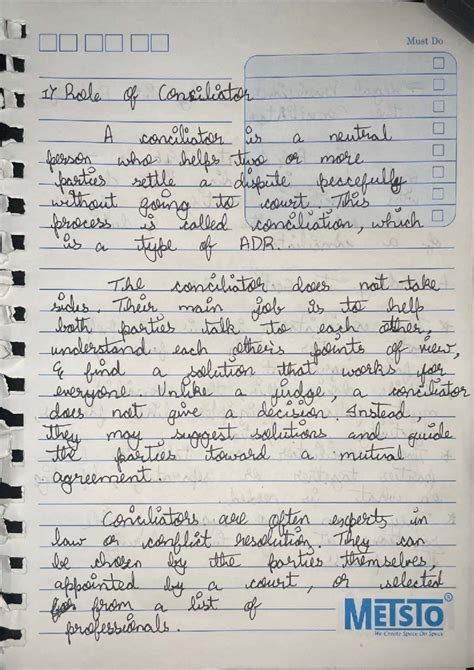 Must Do
1) Role of Conciliator
A conciliator is a neutral
person who helps two or more
parties settle a dispute peacefully
without going to court. This
process is called conciliation, which
is a type of ADR.
The conciliator does not take
sides. Their main job is to help
both parties talk to each other,
understand each other's points of view,
& find a solution that works for
everyone. Unlike a judge, a conciliator
does not give a decision. Instead,
they may suggest solutions and guide
the parties toward a mutual
agreement.
Conciliators are often experts in
law or conflict resolution. They can
be chosen by the parties themselves,
appointed by a court, or selected
from a list of
professionals.
METSTO
We Create Space On Space